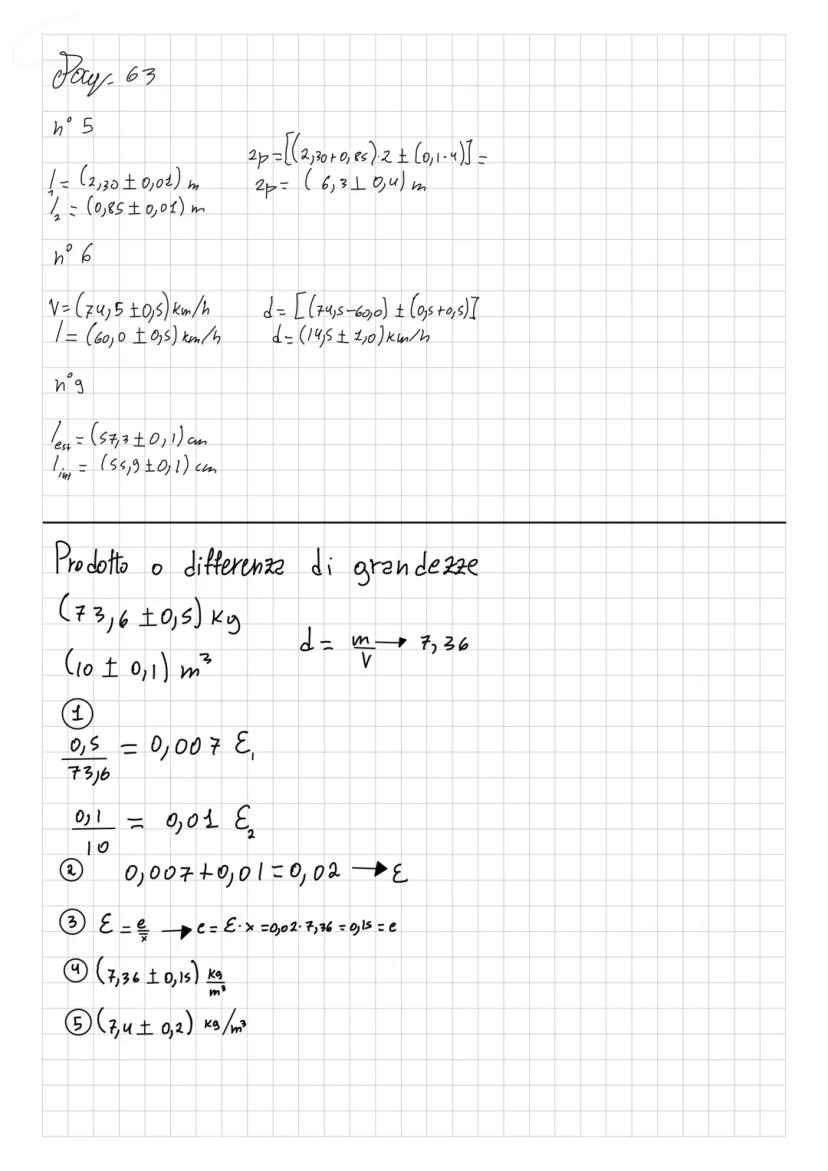 Pag. 63
n° 5
l₁ = (2,30 ± 0,01) m
l₂ = (0,85 ± 0,01) m
2p = [(2,30+0,85)·2 ± (0,1·4)] =
2p = (6,3 ± 0,4) m
n° 6
V = (74,5 ± 0,5) km/h
l = (60,0 ± 0,5) km/h
d = [(74,5-60,0) ± (0,5+0,5)]
d = (14,5 ± 1,0) km/h
n° 9
l_est = (57,3 ± 0,1) cm
l_int = (55,9 ± 0,1) cm
Prodotto o differenza di grandezze
(73,6 ± 0,5) kg
(10 ± 0,1) m³
d = m/V → 7,36
①
0,5/73,6 = 0,007 ε₁
0,1/10 = 0,01 ε₂
② 0,007+0,01=0,02 → ε
③ ε = e/x̄ → e = ε·x = 0,02·7,36 = 0,15 = e
④ (7,36 ± 0,15) kg/m³
⑤ (7,4 ± 0,2) kg/m³